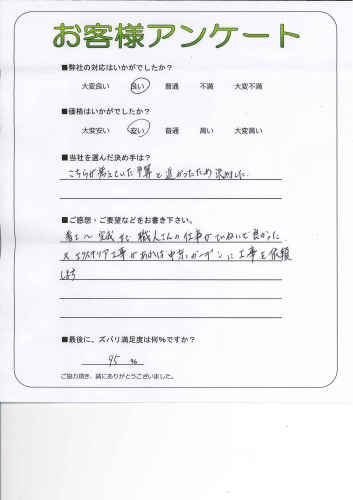 お客様アンケート
■弊社の対応はいかがでしたか?
大変良い 良い 普通 不満 大変不満
■価格はいかがでしたか?
大変安い 安い 普通 高い 大変高い
■当社を選んだ決め手は?
こちらが考えていた予算と近かったため決めました.
■ご感想・ご要望などをお書き下さい。
着工〜完成まで職人さんの仕事がていねいで良かった.
又エクステリア工事があれば中京ガーデンに工事を依頼
します
■最後に、ズバリ満足度は何%ですか?
95 %
ご協力頂き、誠にありがとうございました。